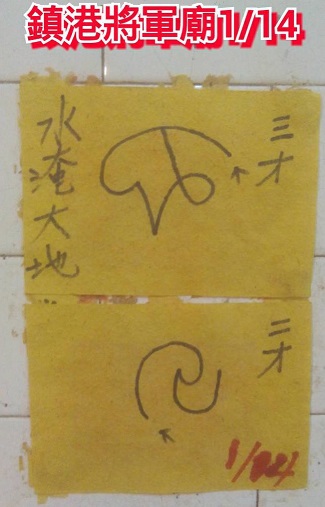 鎮港將軍廟1/14
三才
水淹大地
二才